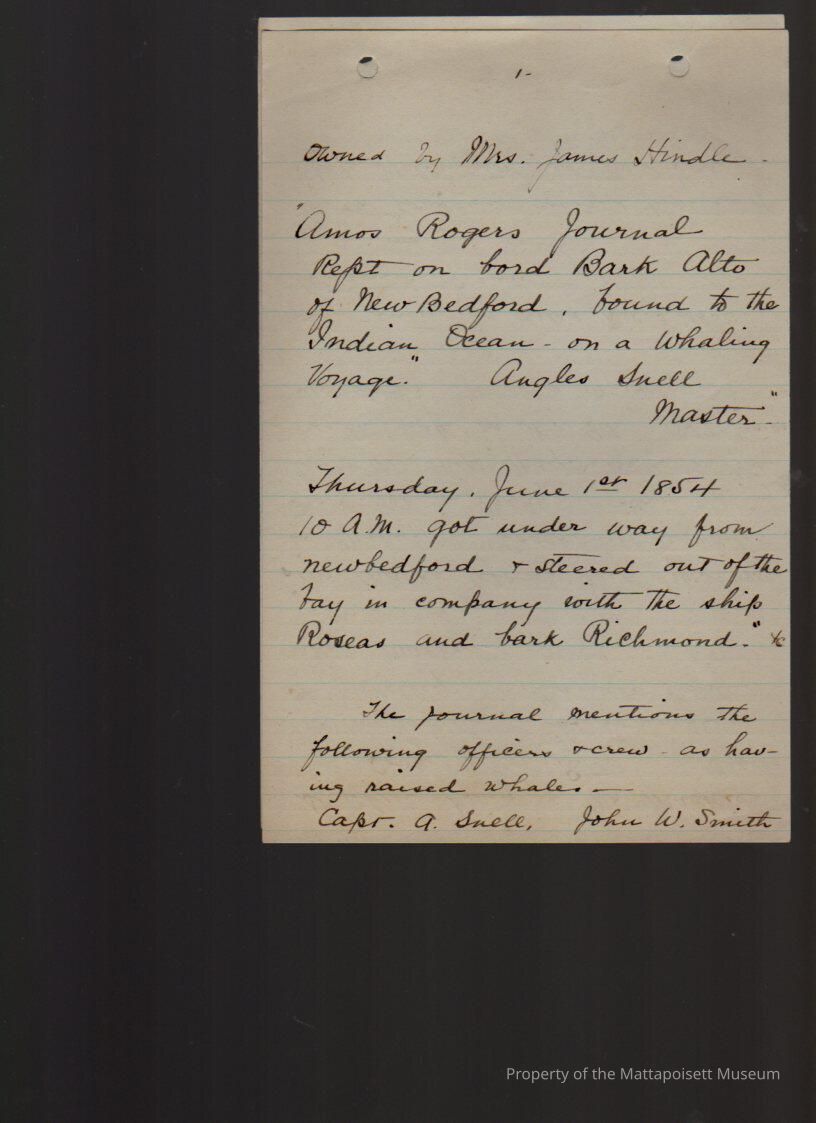 1-
Owned by Mrs. James Hindle -
"Amos Rogers Journal
Kept on bord Bark Alto
of New Bedford, bound to the
Indian Ocean - on a Whaling
Voyage." Angles Snell
Master"-
Thursday, June 1st 1854
10 A.M. got under way from
newbedford & steered out of the
bay in company with the ship
Roseas and bark Richmond." &c
The journal mentions the
following officers & crew - as hav-
ing raised whales -
Capt. A. Snell, John W. Smith
Property of the Mattapoisett Museum